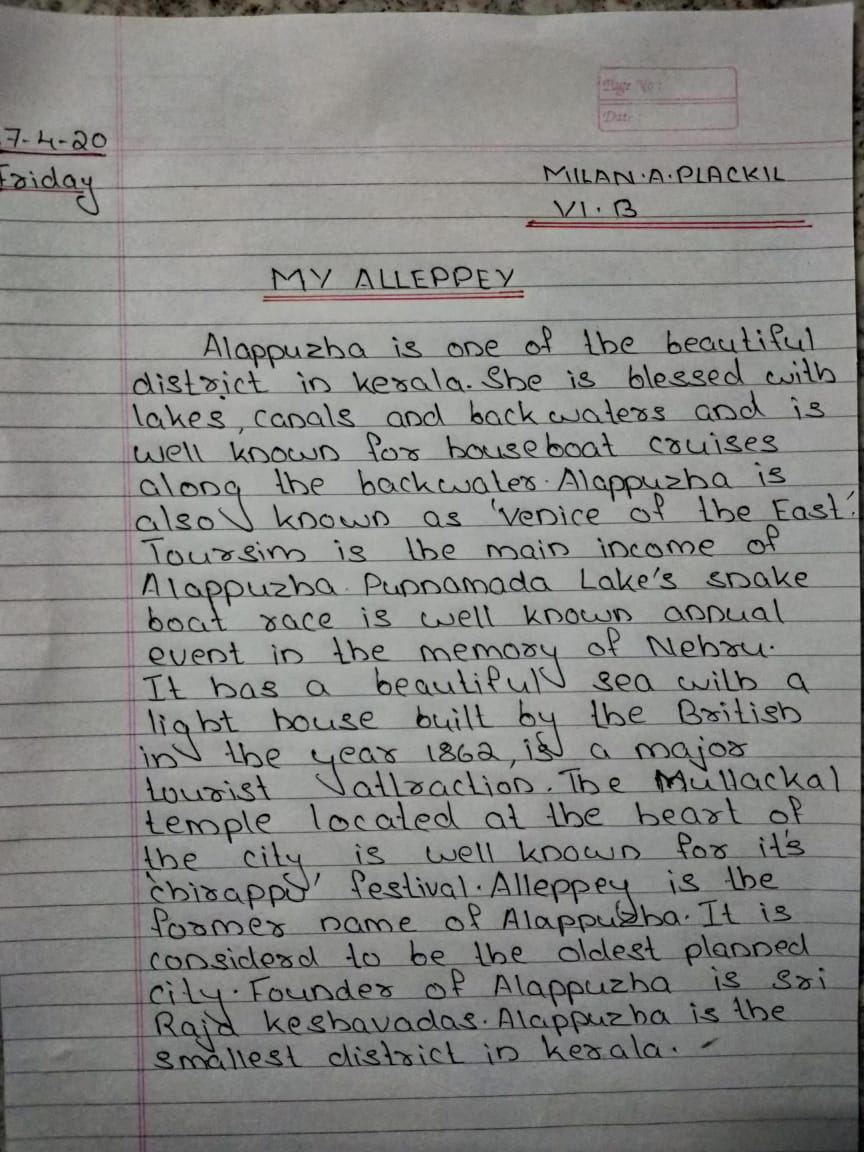 Page No:
Date:
7-4-20
Friday
MILAN.A.PLACKIL
VI.B
MY ALLEPPEY
Alappuzha is one of the beautiful
district in kerala. She is blessed with
lakes, canals and backwaters and is
well known for houseboat cruises
along the backwater. Alappuzha is
also known as 'venice of the East'.
Toursim is the main income of
Alappuzha. Punnamada Lake's snake
boat race is well known annual
event in the memory of Nehru.
It has a beautiful sea with a
light house built by the British
in the year 1862, is a major
tourist attraction. The Mullackal
temple located at the heart of
the city is well known for it's
'chirappu' festival. Alleppey is the
former name of Alappuzha. It is
considerd to be the oldest planned
city. Founder of Alappuzha is Sri
Raja keshavadas. Alappuzha is the
smallest district in kerala.